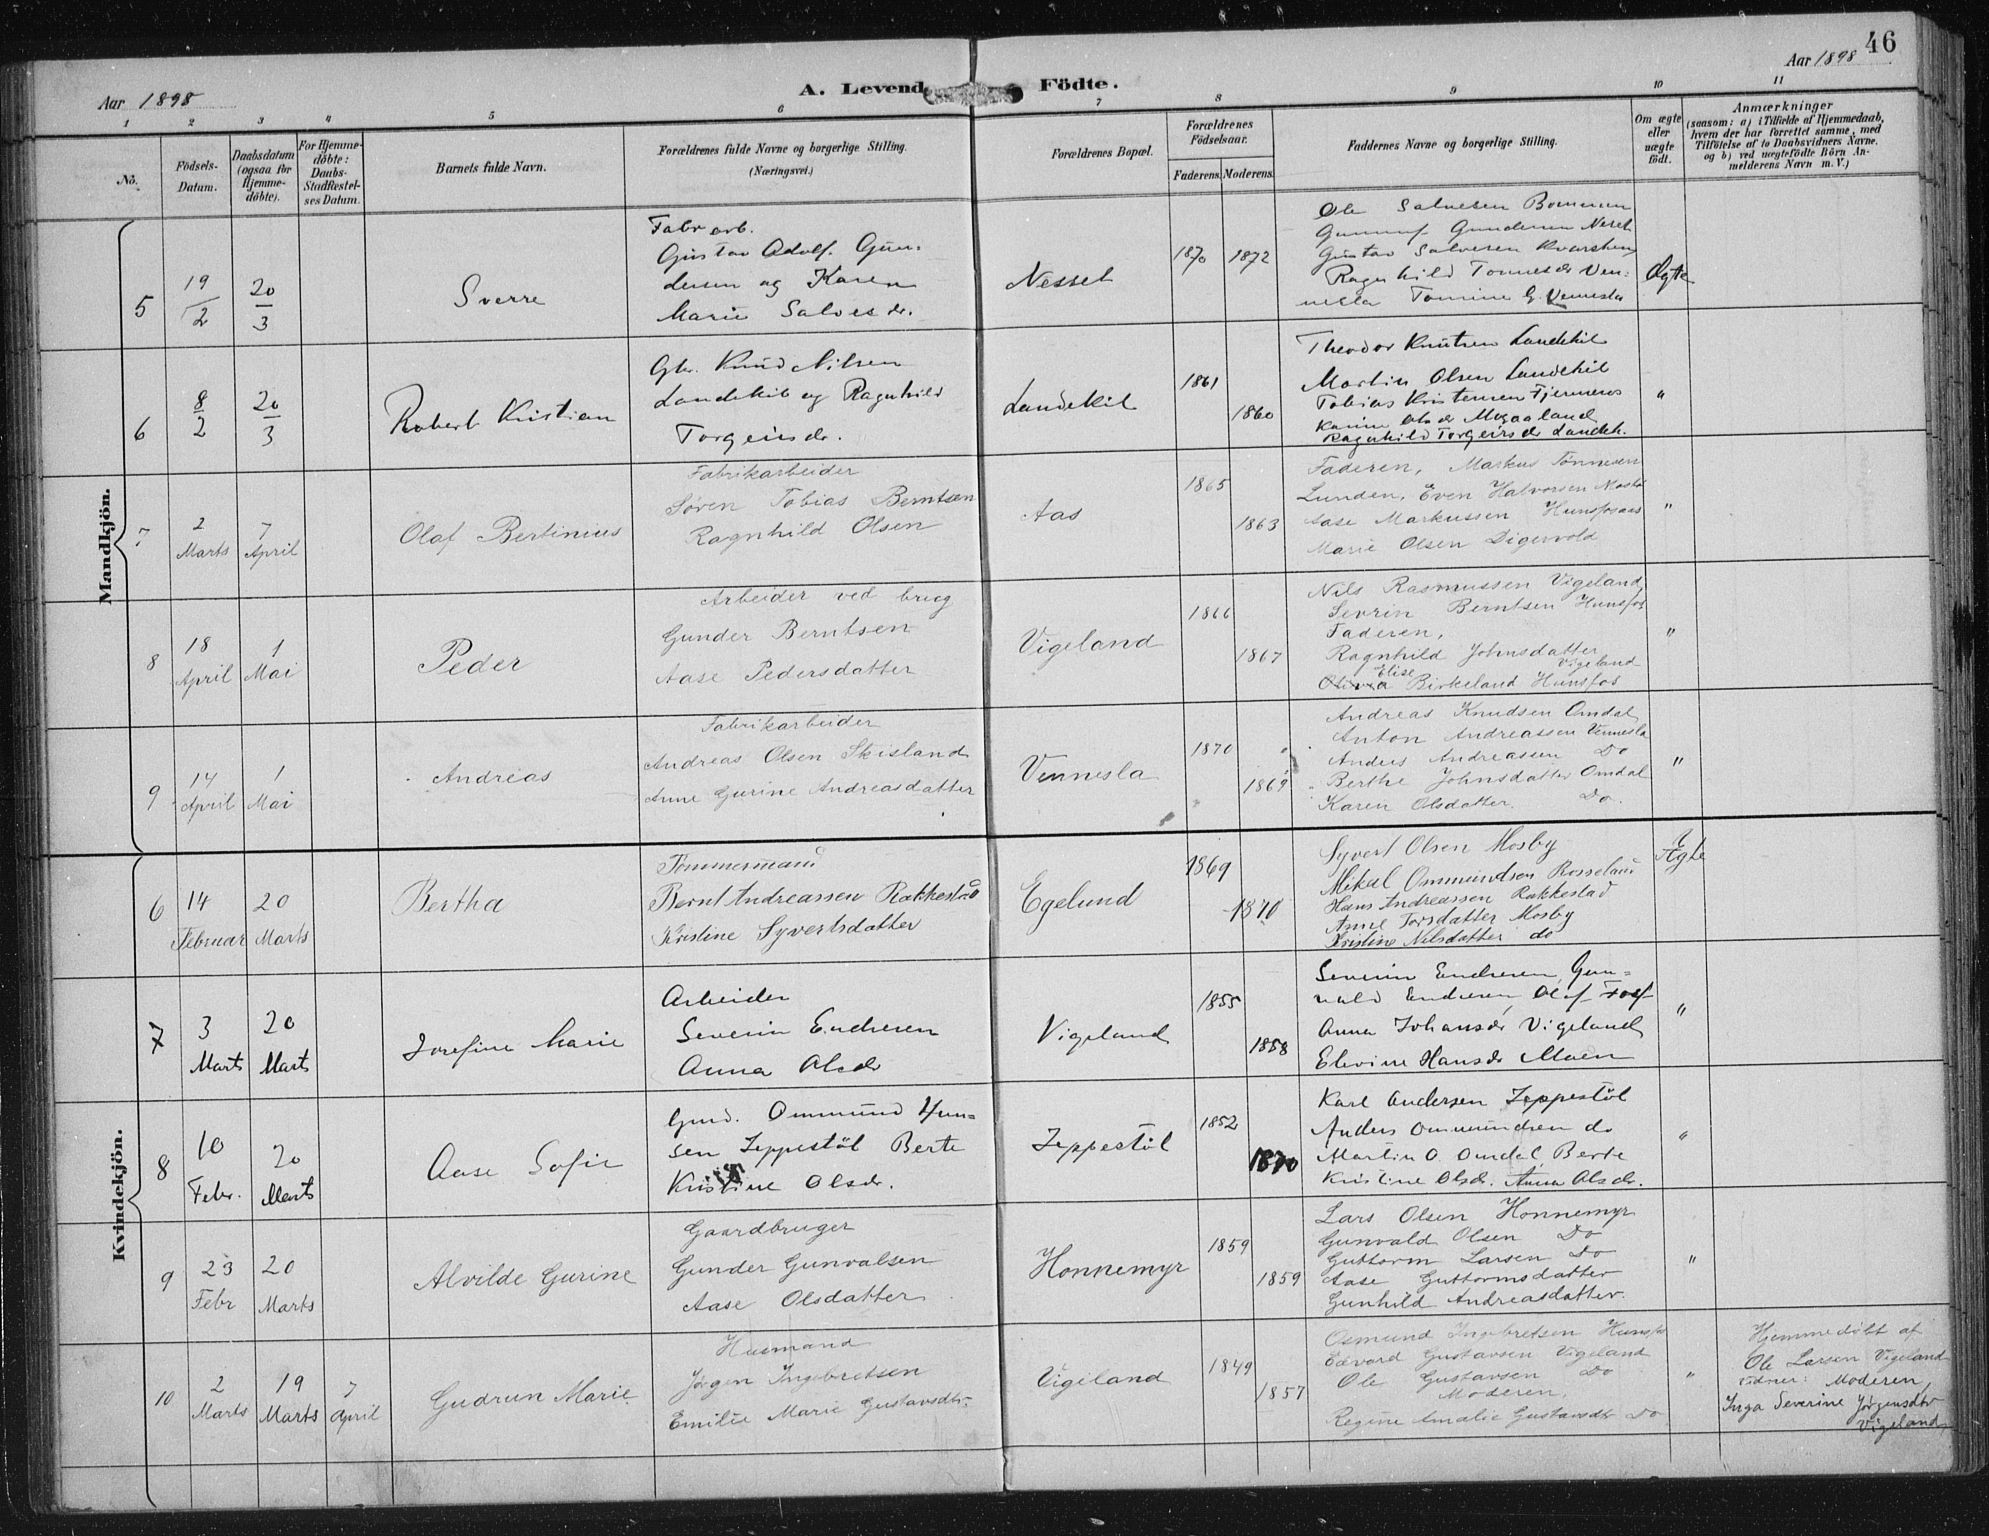 46
Aar 1898
A. Levende Födte.
Aar 1898
1 2 3 4 5 6 7 8 9 10 11
No.
Födsels-
Datum.
Daabsdatum
(ogsaa for
Hjemme-
döbte).
For Hjemme-
döbte:
Daabs-
Stadfæstel-
ses Datum.
Barnets fulde Navn.
Forældrenes fulde Navne og borgerlige Stilling.
(Næringsvei.)
Forældrenes Bopæl.
Forældrenes
Födselsaar.
Faderens. Moderens.
Faddernes Navne og borgerlige Stilling.
Om ægte
eller
uægte
födt.
Anmærkninger
(saasom: a) i Tilfælde af Hjemmedaab,
hvem der har forrettet samme, med
Tilföielse af to Daabsvidners Navne,
og b) ved uægtefödte Börn An-
melderens Navn m. V.)
Mandkjön.
5
19/2
20/3
Sverre
Fabr arb.
Gustav Adolf Gun-
dersen og Karen
Marie Salvesdr.
Nesset
1870
1872
Ole Salvesen
Gundersen
Gustav Salvesen
Ragnhild Tonnesdr Ven-
nesla Tomine G. Vennesla
Ægte
6
8/2
20/3
Robert Kristian
Gbr. Knud Nilsen
Landekil og Ragnhild
Torgeirsdr.
Landekil
1861
1860
Theodor Knutsen Landekil
Martin Olsen Landekil
Tobias Kristensen
Karine Olsdr
Ragnhild Torgeirsdr Landek.
"
7
2
Marts
7
April
Olaf Bertinius
Fabrikarbeider
Søren Tobias Berntsen
Ragnhild Olsen
Aas
1865
1863
Faderen, Markus Tønnesen
Lunden, Even Halvorsen
Aase Markussen Hunsfoss
Marie Olsen Digervold
"
8
18
April
1
Mai
Peder
Arbeider ved brug
Gunder Berntsen
Aase Pedersdatter
Vigeland
1866
1867
Nils Rasmussen Vigeland
Sevrin Berntsen Hunsfos
Faderen,
Ragnhild Johnsdatter
Vigeland
Elise
Olivia Birkeland Hunsfos
"
9
14
April
1
Mai
Andreas
Fabrikarbeider
Andreas Olsen Skisland
Anne Gurine Andreasdatter
Vennesla
1870
1869
Andreas Knudsen Omdal
Anton Andreassen Vennesla
Anders Andreassen Do
Berthe Johnsdatter Omdal
Karen Olsdatter. Do.
"
Kvindekjön.
6
14
Februar
20
Marts
Bertha
Tømmermand
Bernt Andreassen Rakkestad
Kristine Syvertsdatter
Egelund
1869
1870
Syvert Olsen Mosby
Mikal Ommundsen Rosseland
Hans Andreassen Rakkestad
Anne Torsdatter Mosby
Kristine Nilsdatter do
Ægte
7
3
Marts
20
Marts
Josefine Marie
Arbeider
Severin Endresen
Anna Olsdr
Vigeland
1855
1858
Severin Endresen, Gun-
vald Endresen Olaf
Anna Johansdr Vigeland
Elevine Hansdr Moen
"
8
10
Febr.
20
Marts
Aase Sofie
Gmd. Ommund Han-
sen Jeppestöl Berte
Kristine Olsdr.
Jeppestöl
1852
1870
Karl Andersen Jeppestöl
Anders Ommundsen do
Martin O. Omdal Berte
Kristine Olsdr. Anna Olsdr.
"
9
23
Febr
20
Marts
Alvilde Gurine
Gaardbruger
Gunder Gunvalsen
Aase Olsdatter
Honnemyr
1859
1859
Lars Olsen Honnemyr
Gunvald Olsen Do
Guttorm Larsen Do
Aase Guttormsdatter
Gunhild Andreasdatter.
"
10
2
Marts
19
Marts
7
April
Gudrun Marie
Husmand
Jørgen Ingebretsen
Emilie Marie Gustavsdtr.
Vigeland
1849
1857
Osmund Ingebretsen Hunsfos
Edvard Gustavsen Vigeland
Ole Gustavsen Do
Moderen,
Regine Amalie Gustavsdtr Do
"
Hjemmedöbt af
Ole Larsen Vigeland
vidner: Moderen,
Inga Severine Jørgensdtr
Vigeland